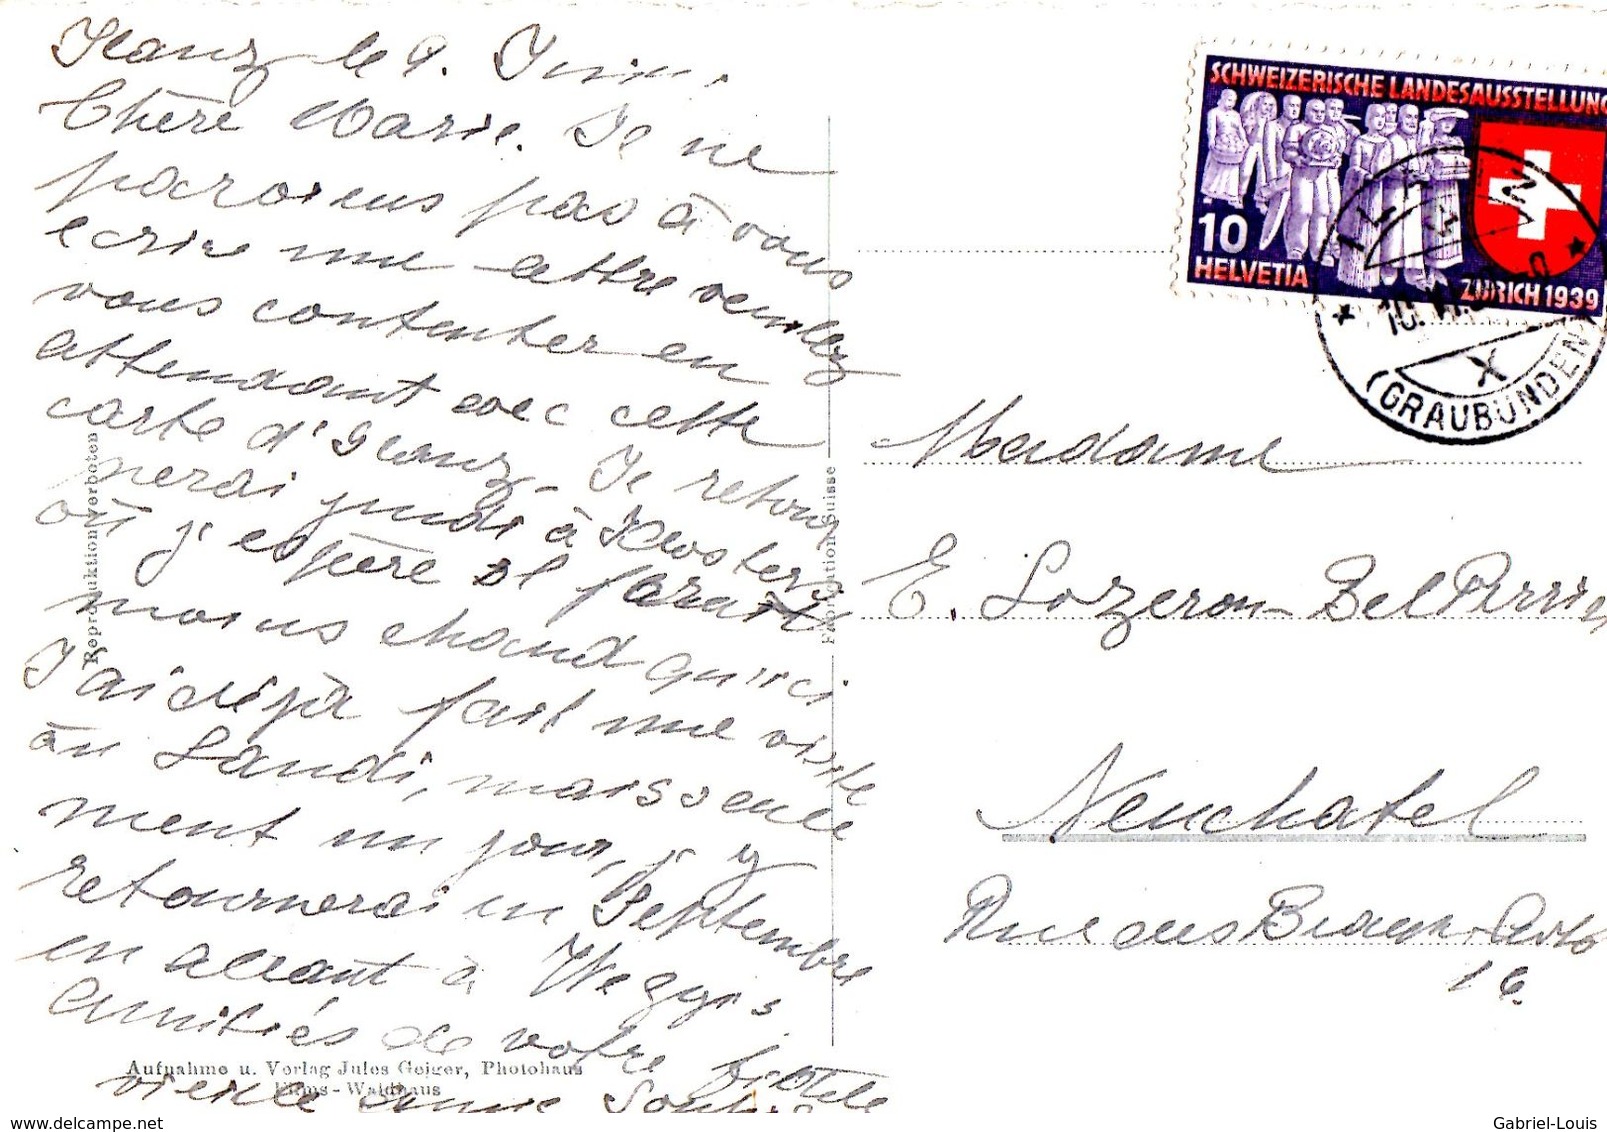 Ilanz le 9. Juin.
Chère Marie. Je ne
parviens pas à vous
écrire une lettre veuillez
vous contenter en
attendant avec cette
carte d'Ilanz. Je retour
nerai jeudi à Klosters
où j'espère il ferait
moins chaud qu'ici
J'ai déjà fait une visite
au Landi, mais seule
ment un jour, j'y
retournerai en Septembre
en allant à Weggis.
Amitiés de votre fidèle
vieille amie Sophie
Reproduktion verboten
Aufnahme u. Verlag Jules Geiger, Photohaus
Flims-Waldhaus
Fabrication Suisse
SCHWEIZERISCHE LANDESAUSSTELLUNG
10
HELVETIA
ZÜRICH 1939
ILANZ
(GRAUBÜNDEN)
Madame
E. Lozeron-Bel Perrin
Neuchatel
Rue des Beaux-Arts
16.
delcampe.net
Gabriel-Louis